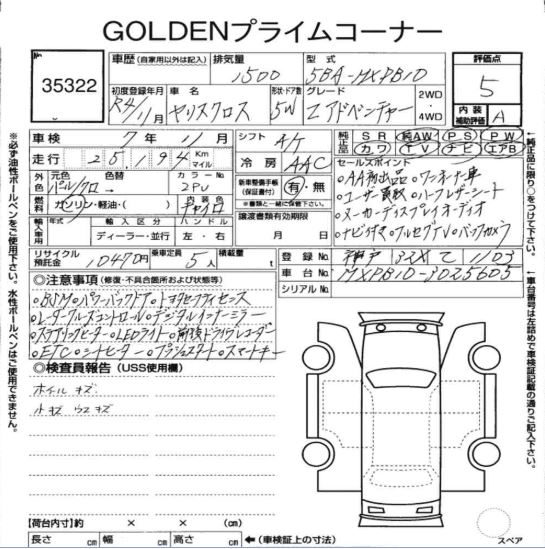 GOLDENプライムコーナー
35322
車歴 (自家用以外は記入)
排気量
1500
型式
5BA-MXPB10
評価点
5
初度登録年月
R4/11月
車名
ヤリスクロス
形状・ドア数
5W
グレード
Z アドベンチャー
2WD
・
4WD
内装
補助評価
A
車検 7年 11月
シフト
A/T
純正品
SR 純AW PS PW
カワ TV ナビ エアB
走行 25,194 Km
マイル
冷房
AAC
セールスポイント
外色
元色
パールクロ
色替
→
カラーNo
2PU
新車整備手帳
(保証書付)
有・無
※書類と一緒に保管下さい。
燃料
ガソリン・軽油・( )
内装色
チャイロ
譲渡書類有効期限
月 日
輸入車用
年式
輸入区分
ディーラー・並行
ハンドル
左・右
リサイクル
預託金
10470円
乗車定員
5人
積載量
t
。AA初出品 。ワンオーナー車
。ユーザー買取 。ハーフレザーシート
。メーカーディスプレイオーディオ
。ナビ付マ 。フルセグTV 。バックカメラ
登録No.
神戸 32X て 1103
車台No.
MXPB10-3025605
シリアルNo.
◎注意事項 (修復・不具合箇所および状態等)
。BSM 。パワーバックドア 。トヨタセーフティセンス
。レーダークルーズコントロール 。デジタルインナーミラー
。ステアリングヒーター 。LEDライト 。前後ドライブレコーダー
。ETC 。シートヒーター 。プッシュスタート 。スマートキー
◎検査員報告 (USS使用欄)
ホイルキズ
小キズ ウスキズ
【荷台内寸】約 × × (cm)
長さ cm 幅 cm 高さ cm ←(車検証上の寸法)
スペア
※必ず油性ボールペンをご使用下さい。水性ボールペンはご使用できません。
←純正品に限り○をつけて下さい。
←車台番号は左詰めで車検証記載の通りご記入下さい。